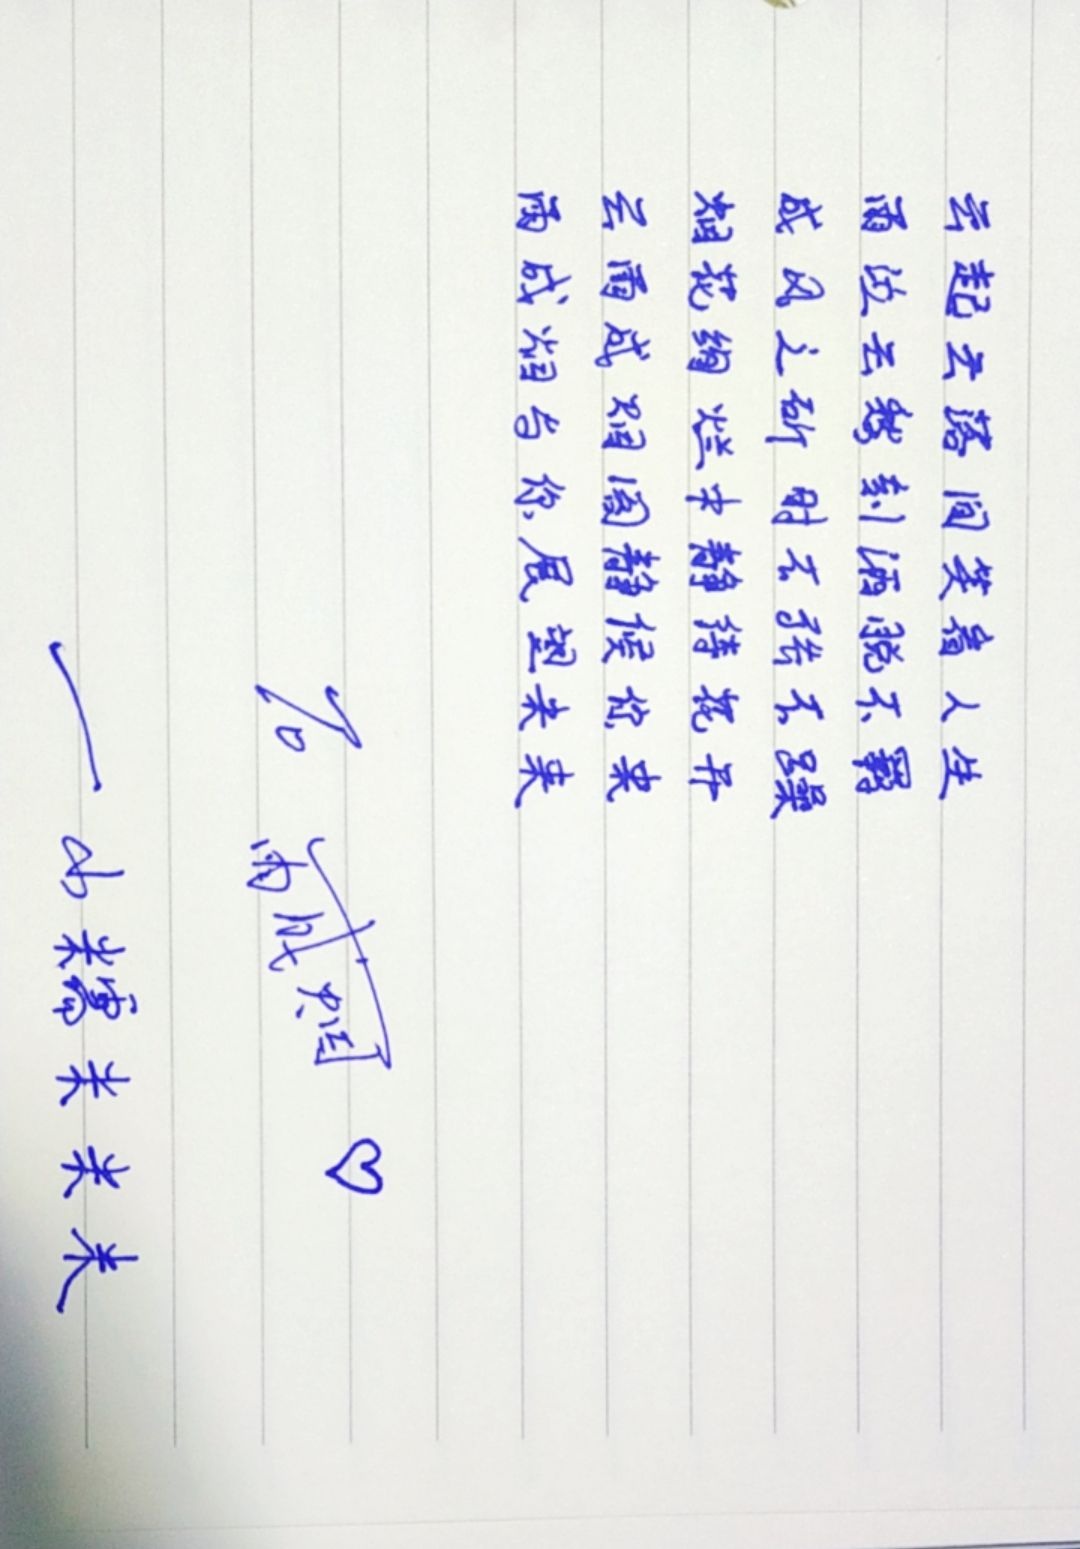 云起云落间笑看人生
雨泣云愁刻洒脱不羁
成风之斫时不骄不躁
烟花绚烂中静待花开
云雨成烟阁静候你来
雨成烟与你展望未来
To 雨成烟 ♡
—小糯米米米